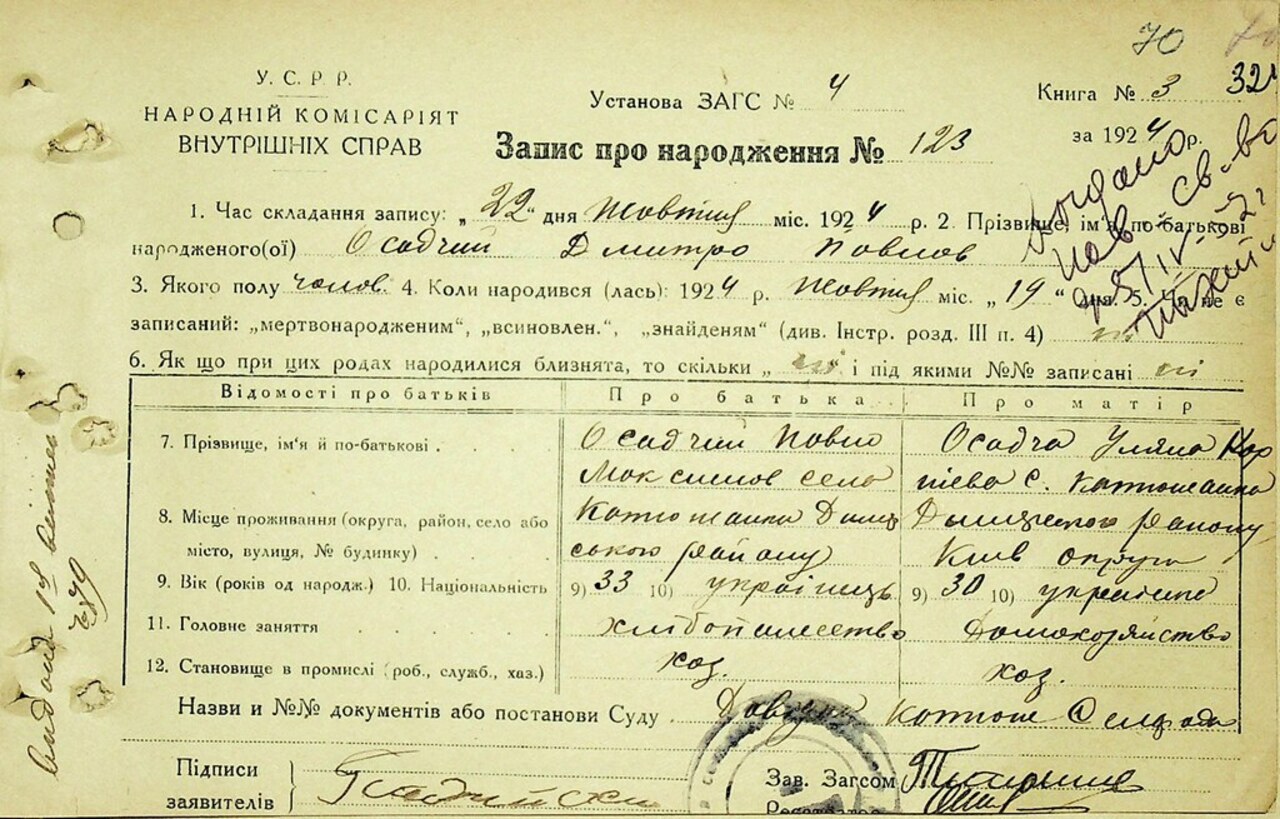 70
У. С. Р. Р.
НАРОДНІЙ КОМІСАРІЯТ
ВНУТРІШНІХ СПРАВ
Установа ЗАГС № 4
Книга № 3 32
за 1924 р.
Запис про народження № 123
1. Час складання запису: „22“ дня Жовтня міс. 1924 р. 2. Прізвище, ім'я по-батькові
народженого(ої) Осадчий Дмитро Павлов
3. Якого полу чолов. 4. Коли народився (лась): 1924 р. Жовтня міс. „19“ дня. 5. Чи не є
записаний: „мертвонародженим“, „всиновлен.“, „знайденям“ (див. Інстр. розд. III п. 4) ні
6. Як що при цих родах народилися близнята, то скільки „ні“ і під якими №№ записані ні
Відомості про батьків
Про батька
Про матір
7. Прізвище, ім'я й по-батькові
Осадчий Павло
Максимов село
Осадча Уляна Кор
нієва С. Катюжанка
8. Місце проживання (округа, район, село або
місто, вулиця, № будинку)
Катюжанка Дими
ського району
Димерського району
Київ округи
9. Вік (років од народж.) 10. Національність
9) 33 10) українець
9) 30 10) українка
11. Головне заняття
хлібопашество
Домохозяйство
12. Становище в промислі (роб., служб., хаз.)
хаз.
хаз.
Назви и №№ документів або постанови Суду Катюж Сельради
Підписи
заявителів
Зав. Загсом
Реєстратор